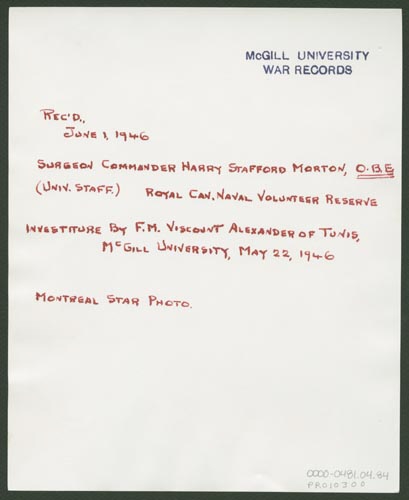 McGILL UNIVERSITY
WAR RECORDS
REC'D.,
JUNE 1, 1946
SURGEON COMMANDER HARRY STAFFORD MORTON, O.B.E
(UNIV. STAFF.) ROYAL CAN. NAVAL VOLUNTEER RESERVE
INVESTITURE BY F.M. VISCOUNT ALEXANDER OF TUNIS,
McGILL UNIVERSITY, MAY 22, 1946
MONTREAL STAR PHOTO.
0000-0481.04.84
PR010300